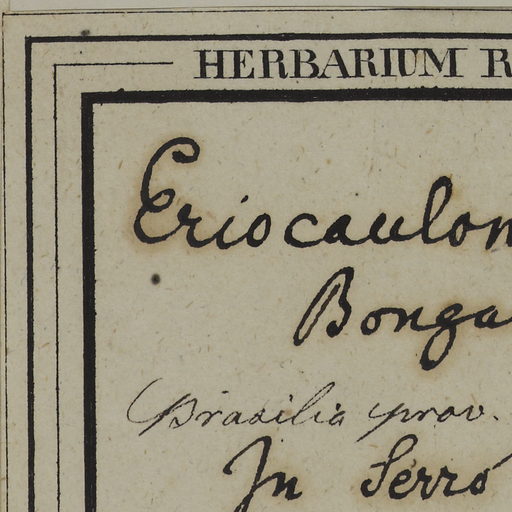 HERBARIUM R
Eriocaulon
Bonga
Brasilia prov.
In Serro